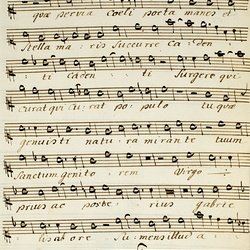 quæ pervia Cœli porta manes et
Stella maris succurre ca den
ti caden ti Surgere qui
curat qui cu rat po pulo tu quæ
genuisti natu ra mirante tuum
Sanctum genito rem Virgo
prius ac poste rius gabrie
lis ab ore su mens illud a